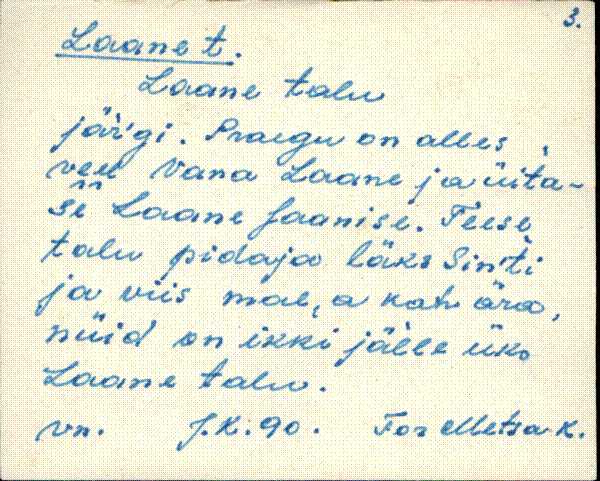 3.
Laane t.
Laane talu
jär'gi. Praegu on alles
veel Vana Laane ja üita-
se Laane Jaanise. Teese
talu pidaja läks Sin'ti
ja viis mae, a kat ära,
nüid on ikki jälle üks
Laane talu.
vn. J.K. 90. Tor Metsa k.